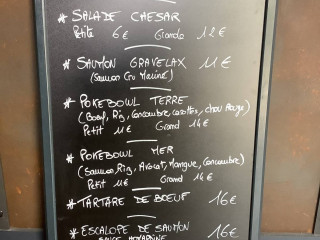 * SALADE CAESAR
Petite 6€ Grande 12€
* SAUMON GRAVELAX 11€
(Saumon Cru Mariné)
* POKEBOWL TERRE
(Boeuf, Riz, Concombre, carottes, chou Rouge)
Petit 11€ Grand 14€
* POKEBOWL MER
(Saumon, Riz, Avocat, Mangue, Concombre)
Petit 11€ Grand 14€
* TARTARE DE BOEUF 16€
* ESCALOPE DE SAUMON 16€
SAUCE